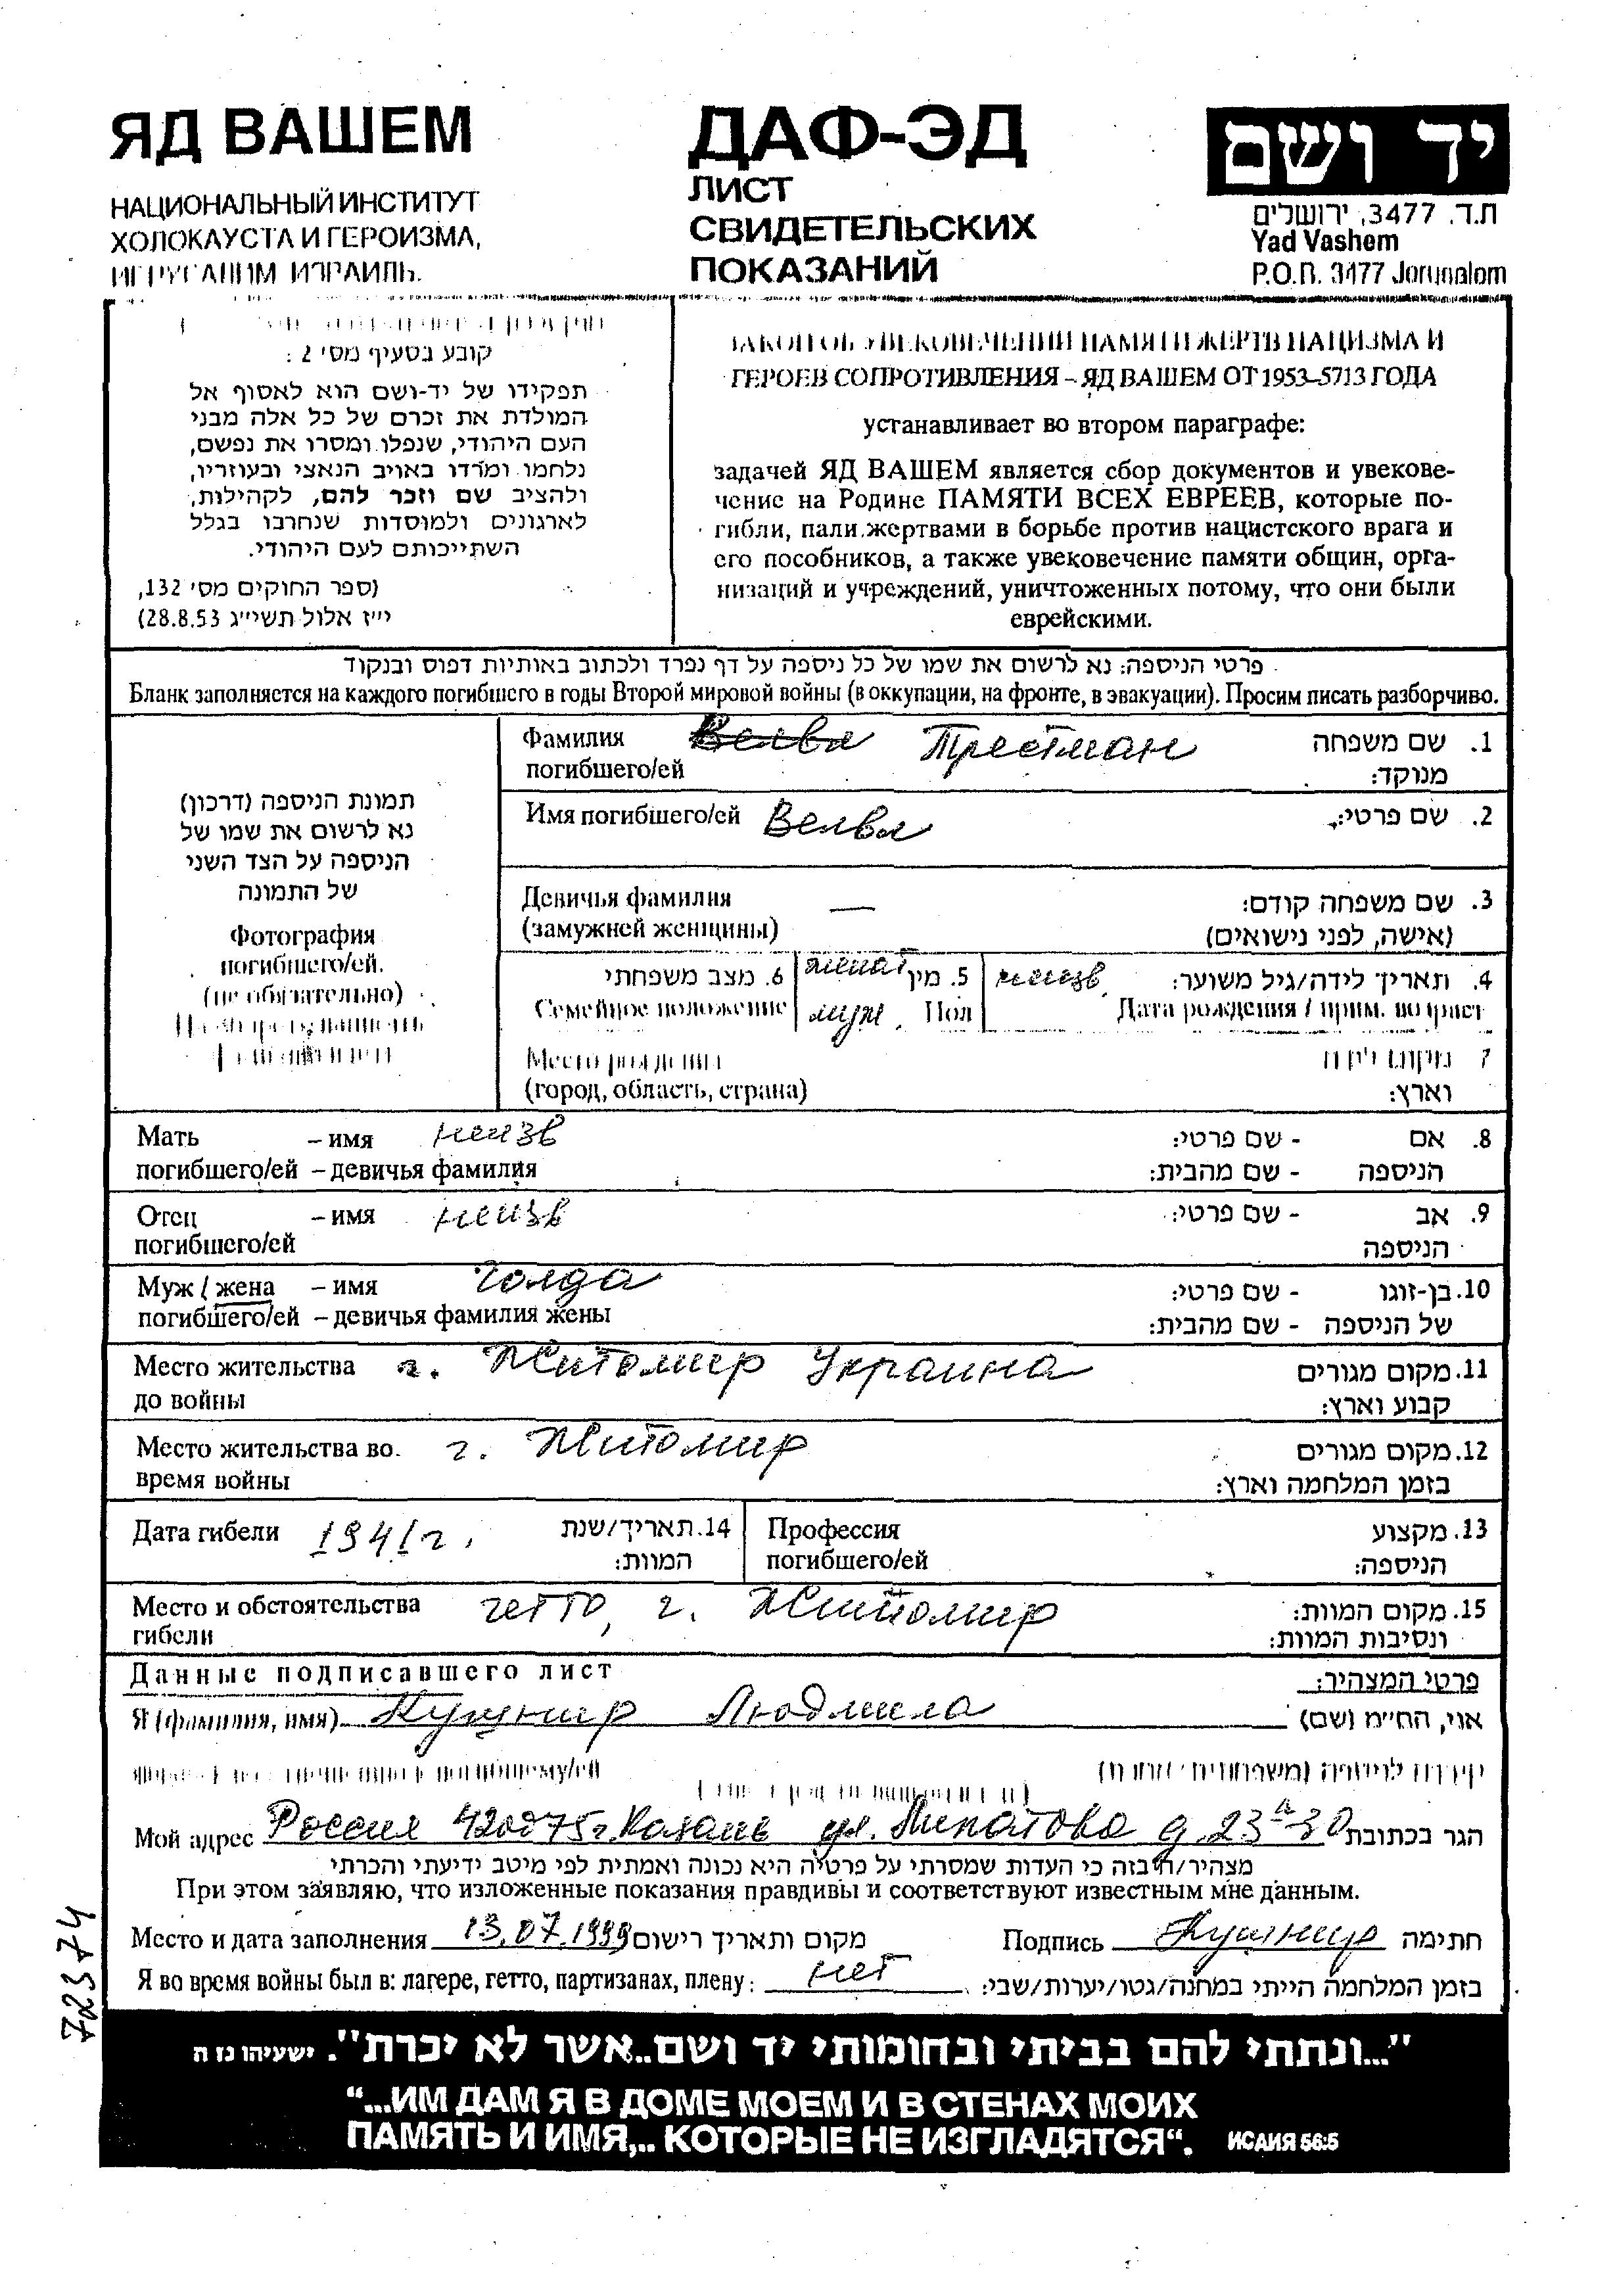 ЯД ВАШЕМ
НАЦИОНАЛЬНЫЙ ИНСТИТУТ
ХОЛОКАУСТА И ГЕРОИЗМА,
ИЗРАИЛЬ.
ДАФ-ЭД
ЛИСТ
СВИДЕТЕЛЬСКИХ
ПОКАЗАНИЙ
יד ושם
ת.ד. 3477, ירושלים
Yad Vashem
P.O.B. 3477 Jerusalem
קובע בסעיף מס' 2:
תפקידו של יד-ושם הוא לאסוף אל
המולדת את זכרם של כל אלה מבני
העם היהודי, שנפלו ומסרו את נפשם,
נלחמו ומרדו באויב הנאצי ובעוזריו,
ולהציב שם וזכר להם, לקהילות,
לארגונים ולמוסדות שנחרבו בגלל
השתייכותם לעם היהודי.
(ספר החוקים מס' 132,
י"ז אלול תשי"ג 28.8.53)
ЗАКОН ОБ УВЕКОВЕЧЕНИИ ПАМЯТИ ЖЕРТВ НАЦИЗМА И
ГЕРОЕВ СОПРОТИВЛЕНИЯ – ЯД ВАШЕМ ОТ 1953–5713 ГОДА
устанавливает во втором параграфе:
задачей ЯД ВАШЕМ является сбор документов и увекове-
чение на Родине ПАМЯТИ ВСЕХ ЕВРЕЕВ, которые по-
гибли, пали жертвами в борьбе против нацистского врага и
его пособников, а также увековечение памяти общин, орга-
низаций и учреждений, уничтоженных потому, что они были
еврейскими.
פרטי הניספה: נא לרשום את שמו של כל ניספה על דף נפרד ולכתוב באותיות דפוס ובנקוד
Бланк заполняется на каждого погибшего в годы Второй мировой войны (в оккупации, на фронте, в эвакуации). Просим писать разборчиво.
תמונת הניספה (דרכון)
נא לרשום את שמו של
הניספה על הצד השני
של התמונה
Фотография
погибшего/ей.
(не обязательно)
Фамилия Велвл Трестман 1. שם משפחה
погибшего/ей מנוקד:
Имя погибшего/ей Велвл 2. שם פרטי:
Девичья фамилия — 3. שם משפחה קודם:
(замужней женщины) (אישה, לפני נישואים)
6. מצב משפחתי женат 5. מין неизв. 4. תאריך לידה/גיל משוער:
Семейное положение муж. Пол Дата рождения / прим. возраст
Место рождения 7. מקום לידה
(город, область, страна) וארץ:
Мать – имя неизв 8. אם - שם פרטי:
погибшего/ей – девичья фамилия הניספה - שם מהבית:
Отец – имя неизв 9. אב - שם פרטי:
погибшего/ей הניספה
Муж / жена – имя Голда 10. בן-זוגו - שם פרטי:
погибшего/ей – девичья фамилия жены של הניספה - שם מהבית:
Место жительства г. Житомир Украина 11. מקום מגורים
до войны קבוע וארץ:
Место жительства во г. Житомир 12. מקום מגורים
время войны בזמן המלחמה וארץ:
Дата гибели 1941г. 14. תאריך/שנת Профессия 13. מקצוע
המוות: погибшего/ей הניספה:
Место и обстоятельства гетто, г. Житомир 15. מקום המוות:
гибели ונסיבות המוות:
Данные подписавшего лист פרטי המצהיר:
Я (фамилия, имя) Кушнир Людмила אני, הח"מ (שם)
погибшему/ей
Мой адрес Россия 420075 г. Казань ул. Липатова д. 23 30 הגר בכתובת
מצהיר/ה בזה כי העדות שמסרתי על פרטיה היא נכונה ואמתית לפי מיטב ידיעתי והכרתי
При этом заявляю, что изложенные показания правдивы и соответствуют известным мне данным.
Место и дата заполнения 13.07.1999 מקום ותאריך רישום Подпись Кушнир חתימה
Я во время войны был в: лагере, гетто, партизанах, плену: нет בזמן המלחמה הייתי במחנה/גטו/יערות/שבי:
72374
"...ונתתי להם בביתי ובחומותי יד ושם..אשר לא יכרת". ישעיהו נו ה
“...ИМ ДАМ Я В ДОМЕ МОЕМ И В СТЕНАХ МОИХ
ПАМЯТЬ И ИМЯ,.. КОТОРЫЕ НЕ ИЗГЛАДЯТСЯ“. ИСАИЯ 56:5